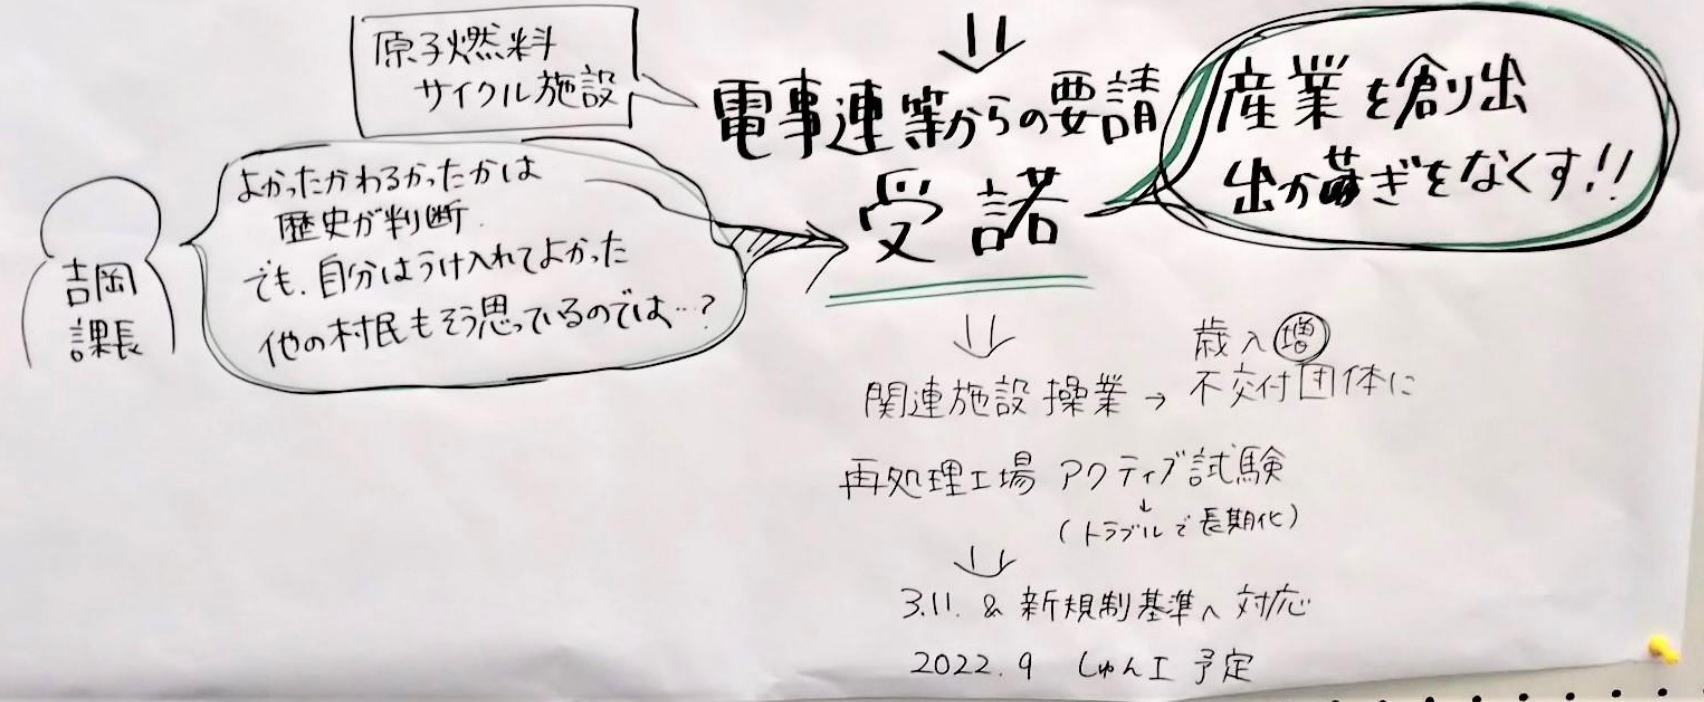 原子燃料
サイクル施設
電事連等からの要請
受諾
産業を創り出
出かせぎをなくす!!
よかったかわるかったかは
歴史が判断.
でも、自分はうけ入れてよかった
他の村民もそう思っているのでは…?
吉岡
課長
関連施設操業→
歳入増
不交付団体に
再処理工場 アクティブ試験
(トラブルで長期化)
3.11. & 新規制基準へ対応
2022.9 しゅん工予定